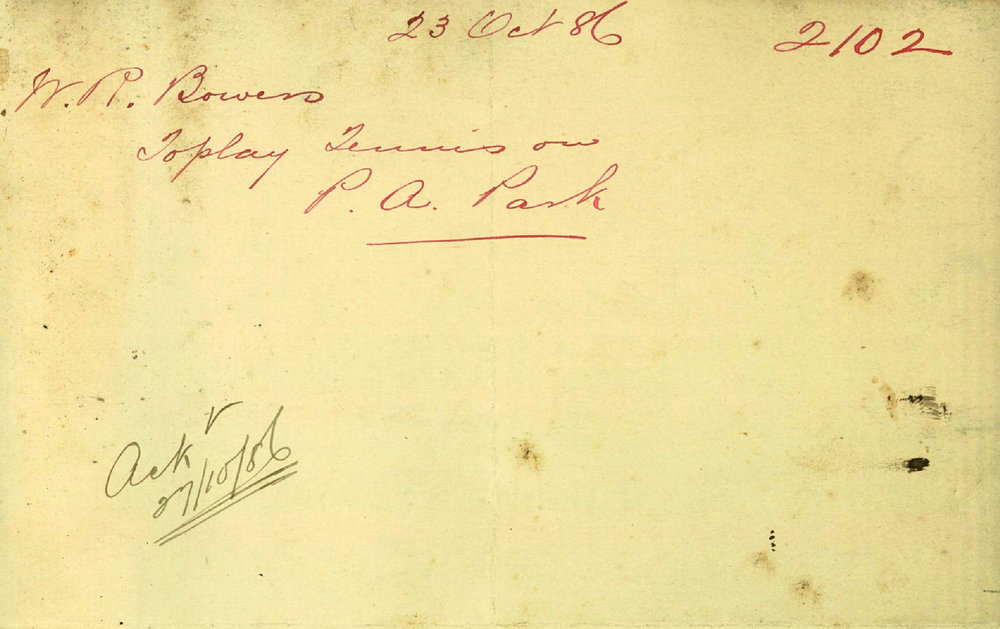 23 Oct 86 2102
W. R. Bowers
To play Tennis on
P. A. Park
Ack
27/10/86